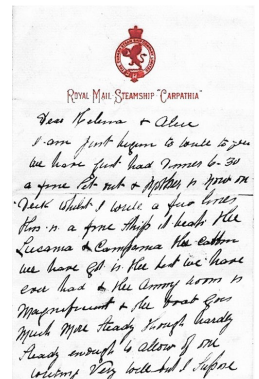 ROYAL MAIL STEAMSHIP "CARPATHIA"
Dear Helena & Alice
I am just begun to write to you
we have just had Dinner 6-30
a fine Pit out & Mother is now on
Deck whilst I write a few lines
this is a fine Ship it beats the
Lucania & Campania the cabin
we have got is the best we have
ever had & the Dining room is
Magnificent & the boat goes
much more steady though hardly
steady enough to allow of one
writing very well but I suppose